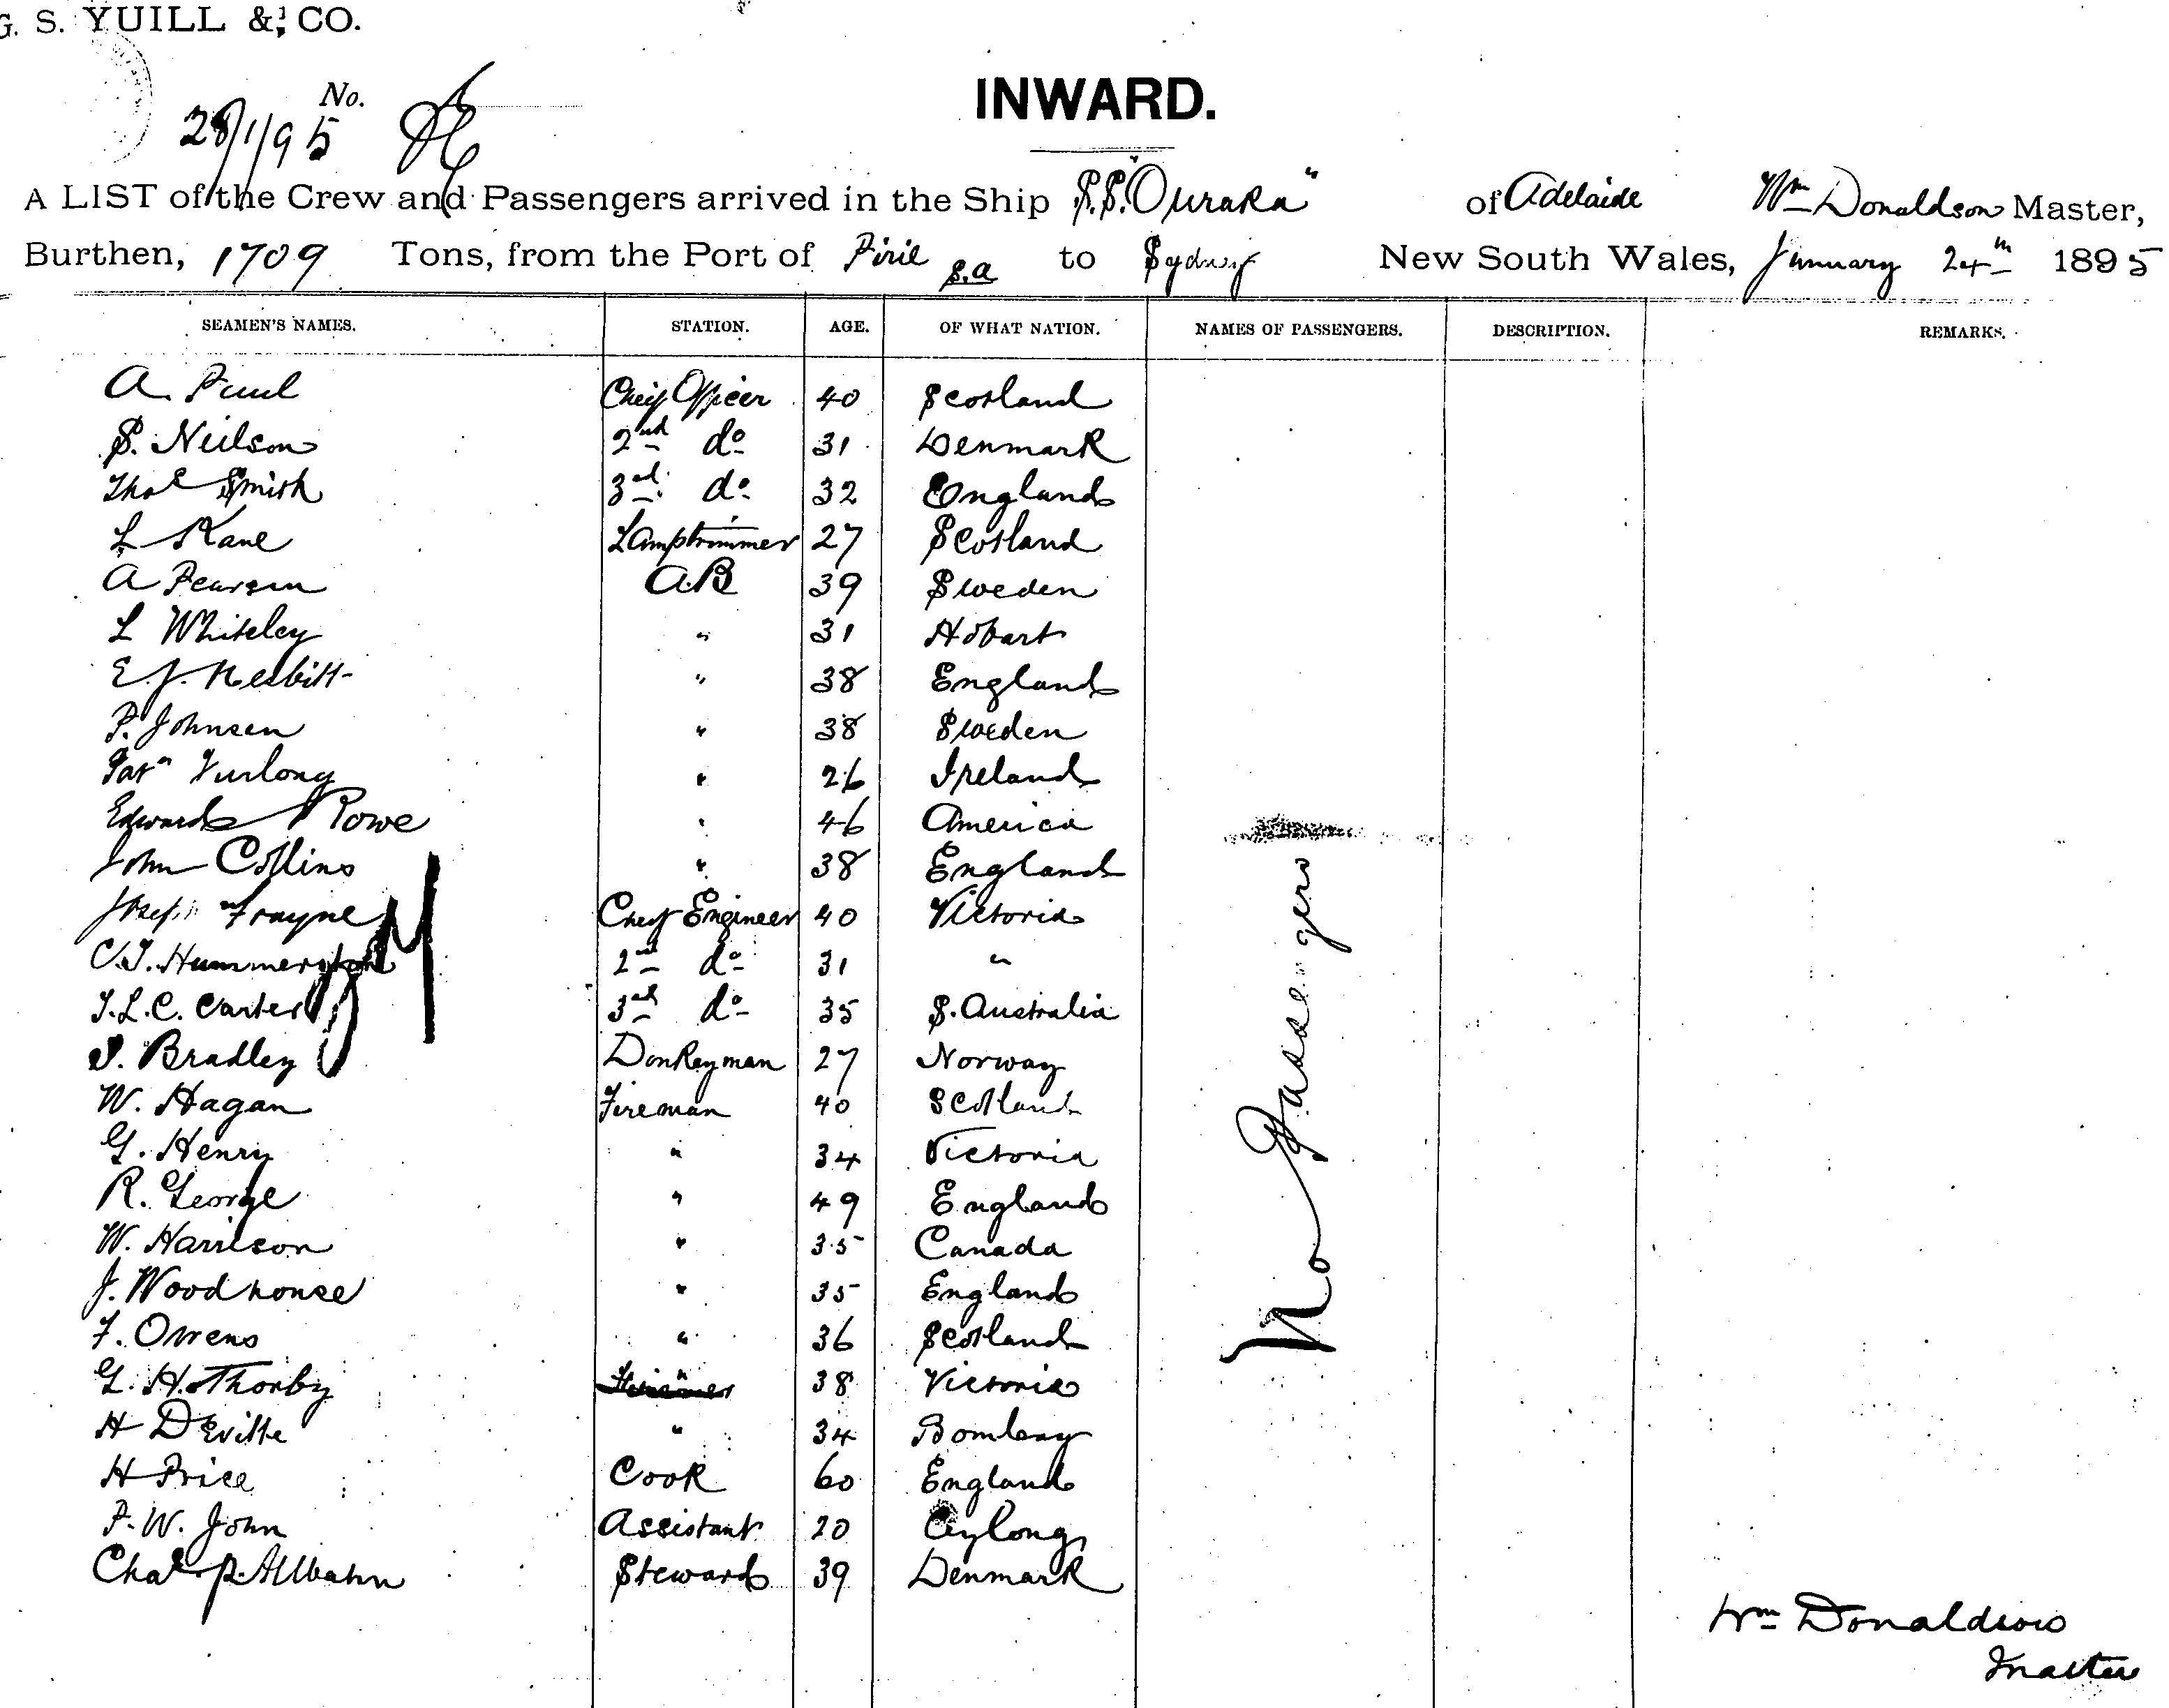 G. S. YUILL & CO.
No.
28/1/95
INWARD.
A LIST of the Crew and Passengers arrived in the Ship S.S. "Ouraka" of Adelaide Wm Donaldson Master,
Burthen, 1709 Tons, from the Port of Pirie S.A to Sydney New South Wales, January 24th 1895
SEAMEN'S NAMES. STATION. AGE. OF WHAT NATION. NAMES OF PASSENGERS. DESCRIPTION. REMARKS.
A. Paul Cheif Officer 40 Scotland
S. Neilson 2nd do 31 Denmark
Thos Smith 3rd do 32 England
L Kane Lamptrimmer 27 Scotland
A Pearson A.B 39 Sweden
L Whiteley " 31 Hobart
E. J. Nesbitt " 38 England
P. Johnsen " 38 Sweden
Furlong " 26 Ireland
Edward Rowe " 46 America
John Collins " 38 England
Joseph Frayne Cheif Engineer 40 Victoria
C.J. Hummerston 2nd do 31 "
T.L.C. Carter 3rd do 35 S. Australia
Bradley Donkeyman 27 Norway
W. Hagan Fireman 40 Scotland
G. Henry " 34 Victoria
R. George " 49 England
W. Harrison " 35 Canada
J. Woodhouse " 35 England
F. Owens " 36 Scotland
G. H. Thorby " 38 Victoria
H DEville " 34 Bombay
H Price Cook 60 England
P. W. John Assistant 20 Ceylong
Chas P. Allbahn Steward 39 Denmark
No Passengers
Wm Donaldson
Master